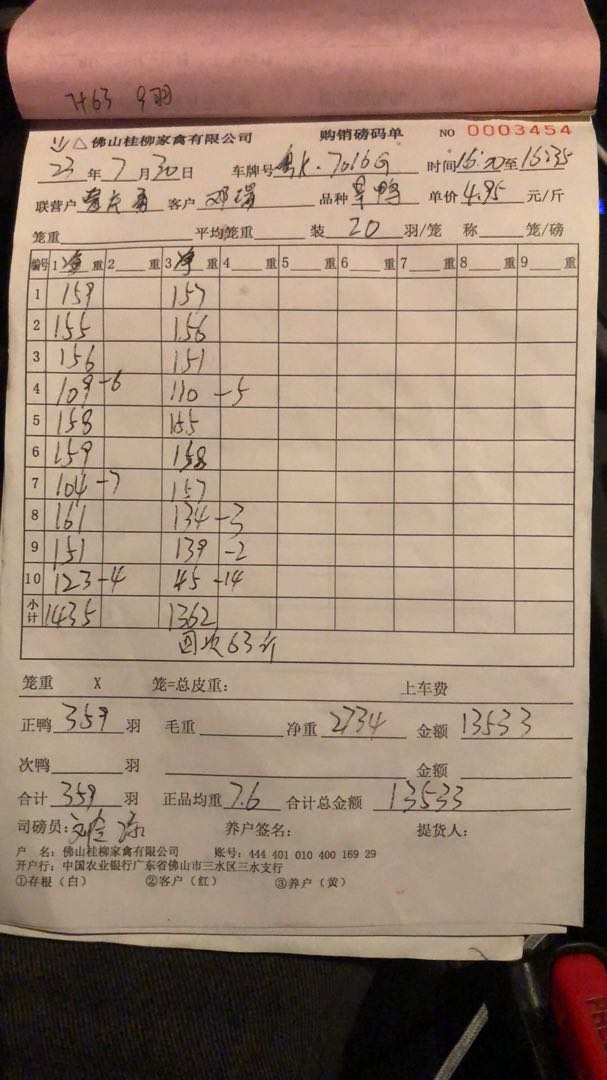 7+63 9羽
佛山桂柳家禽有限公司 购销磅码单 NO 0003454
23 年 7 月 30 日 车牌号 粤K·7016G 时间 16:20 至 16:35
联营户 客户 邓瑞 品种 草鸭 单价 4.95 元/斤
笼重 平均笼重 装 20 羽/笼 称 笼/磅
编号 1 净 重 2 重 3 净 重 4 重 5 重 6 重 7 重 8 重 9 重
1 159 157
2 155 156
3 156 151
4 109-6 110-5
5 158 155
6 159 158
7 104-7 157
8 161 134-3
9 151 139-2
10 123-4 45-14
小计 1435 1362
回次63斤
笼重 X 笼=总皮重： 上车费
正鸭 359 羽 毛重 净重 2734 金额 13533
次鸭 羽 金额
合计 359 羽 正品均重 7.6 合计总金额 13533
司磅员： 养户签名： 提货人：
户 名：佛山桂柳家禽有限公司 账号：444 401 010 400 169 29
开户行：中国农业银行广东省佛山市三水区三水支行
①存根（白） ②客户（红） ③养户（黄）